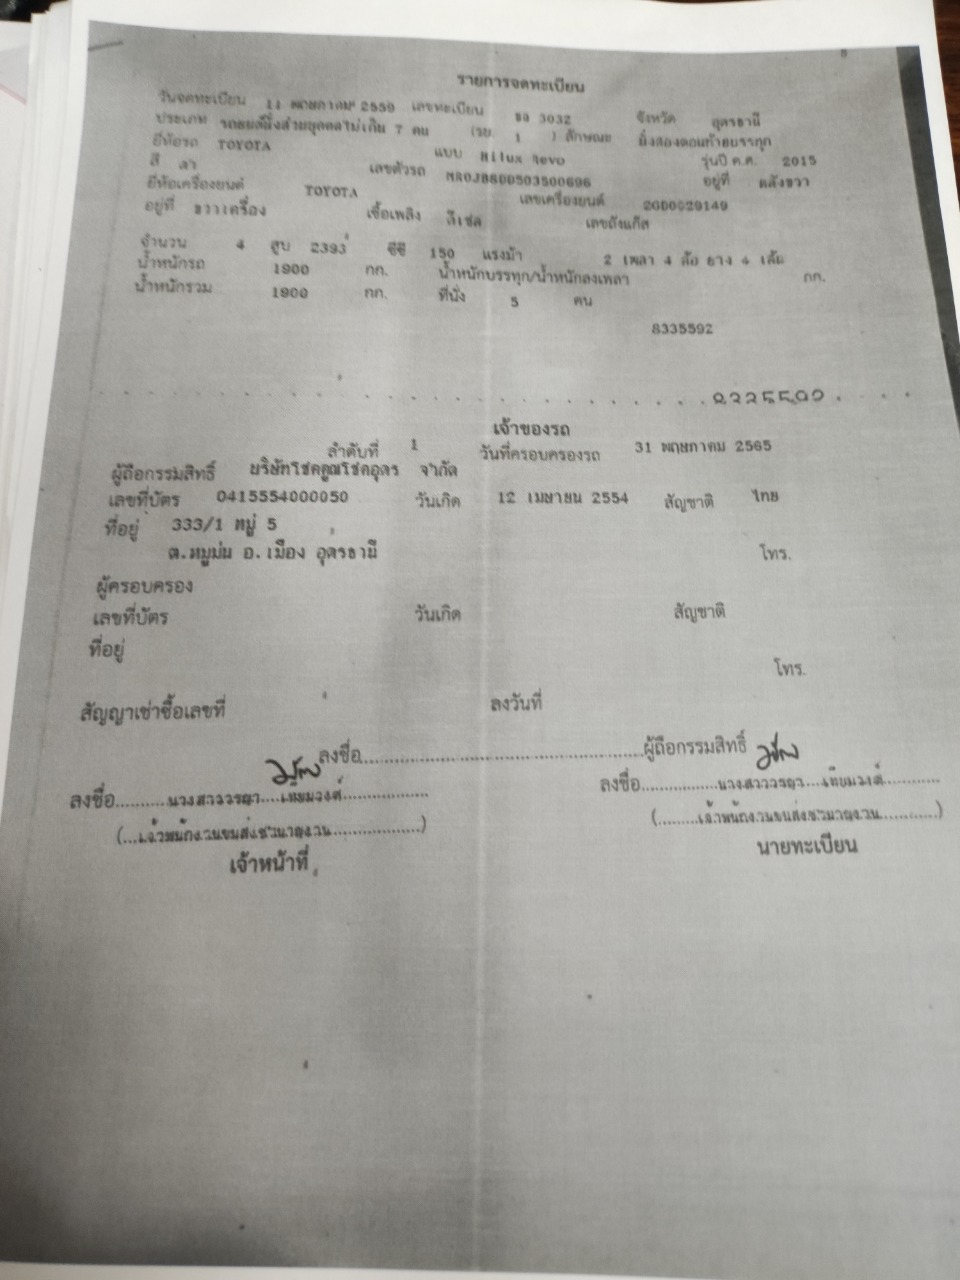 รายการจดทะเบียน
วันจดทะเบียน 11 พฤษภาคม 2559 เลขทะเบียน 3032 จังหวัด อุดรธานี
ประเภท รถยนต์นั่งส่วนบุคคลไม่เกิน 7 คน (รย. 1 ) ลักษณะ นั่งสองตอนท้ายบรรทุก
ยี่ห้อรถ TOYOTA แบบ Hilux Revo รุ่นปี ค.ศ. 2015
สี ดำ เลขตัวรถ อยู่ที่ หลังขวา
ยี่ห้อเครื่องยนต์ TOYOTA เลขเครื่องยนต์ 2GD0029149
อยู่ที่ ขวาเครื่อง เชื้อเพลิง ดีเซล เลขถังแก๊ส
จำนวน 4 สูบ 2393 ซีซี 150 แรงม้า 2 เพลา 4 ล้อ ยาง 4 เส้น
น้ำหนักรถ 1900 กก. น้ำหนักบรรทุก/น้ำหนักลงเพลา กก.
น้ำหนักรวม 1900 กก. ที่นั่ง 5 คน
8335592
เจ้าของรถ
ลำดับที่ 1 วันที่ครอบครองรถ 31 พฤษภาคม 2565
ผู้ถือกรรมสิทธิ์ บริษัทโชคคูณโชคอุดร จำกัด
เลขที่บัตร 0415554000050 วันเกิด 12 เมษายน 2554 สัญชาติ ไทย
ที่อยู่ 333/1 หมู่ 5
ต.หมูม่น อ.เมือง อุดรธานี โทร.
ผู้ครอบครอง
เลขที่บัตร วันเกิด สัญชาติ
ที่อยู่
โทร.
สัญญาเช่าซื้อเลขที่ ลงวันที่
ลงชื่อ.......................................ผู้ถือกรรมสิทธิ์
ลงชื่อ..........นางสาววรญา....เทียมวงศ์.................. ลงชื่อ................นางสาววรญา....เทียมวงศ์............
(...เจ้าพนักงานขนส่งชำนาญงาน..................) (........เจ้าพนักงานขนส่งชำนาญงาน............)
เจ้าหน้าที่ นายทะเบียน